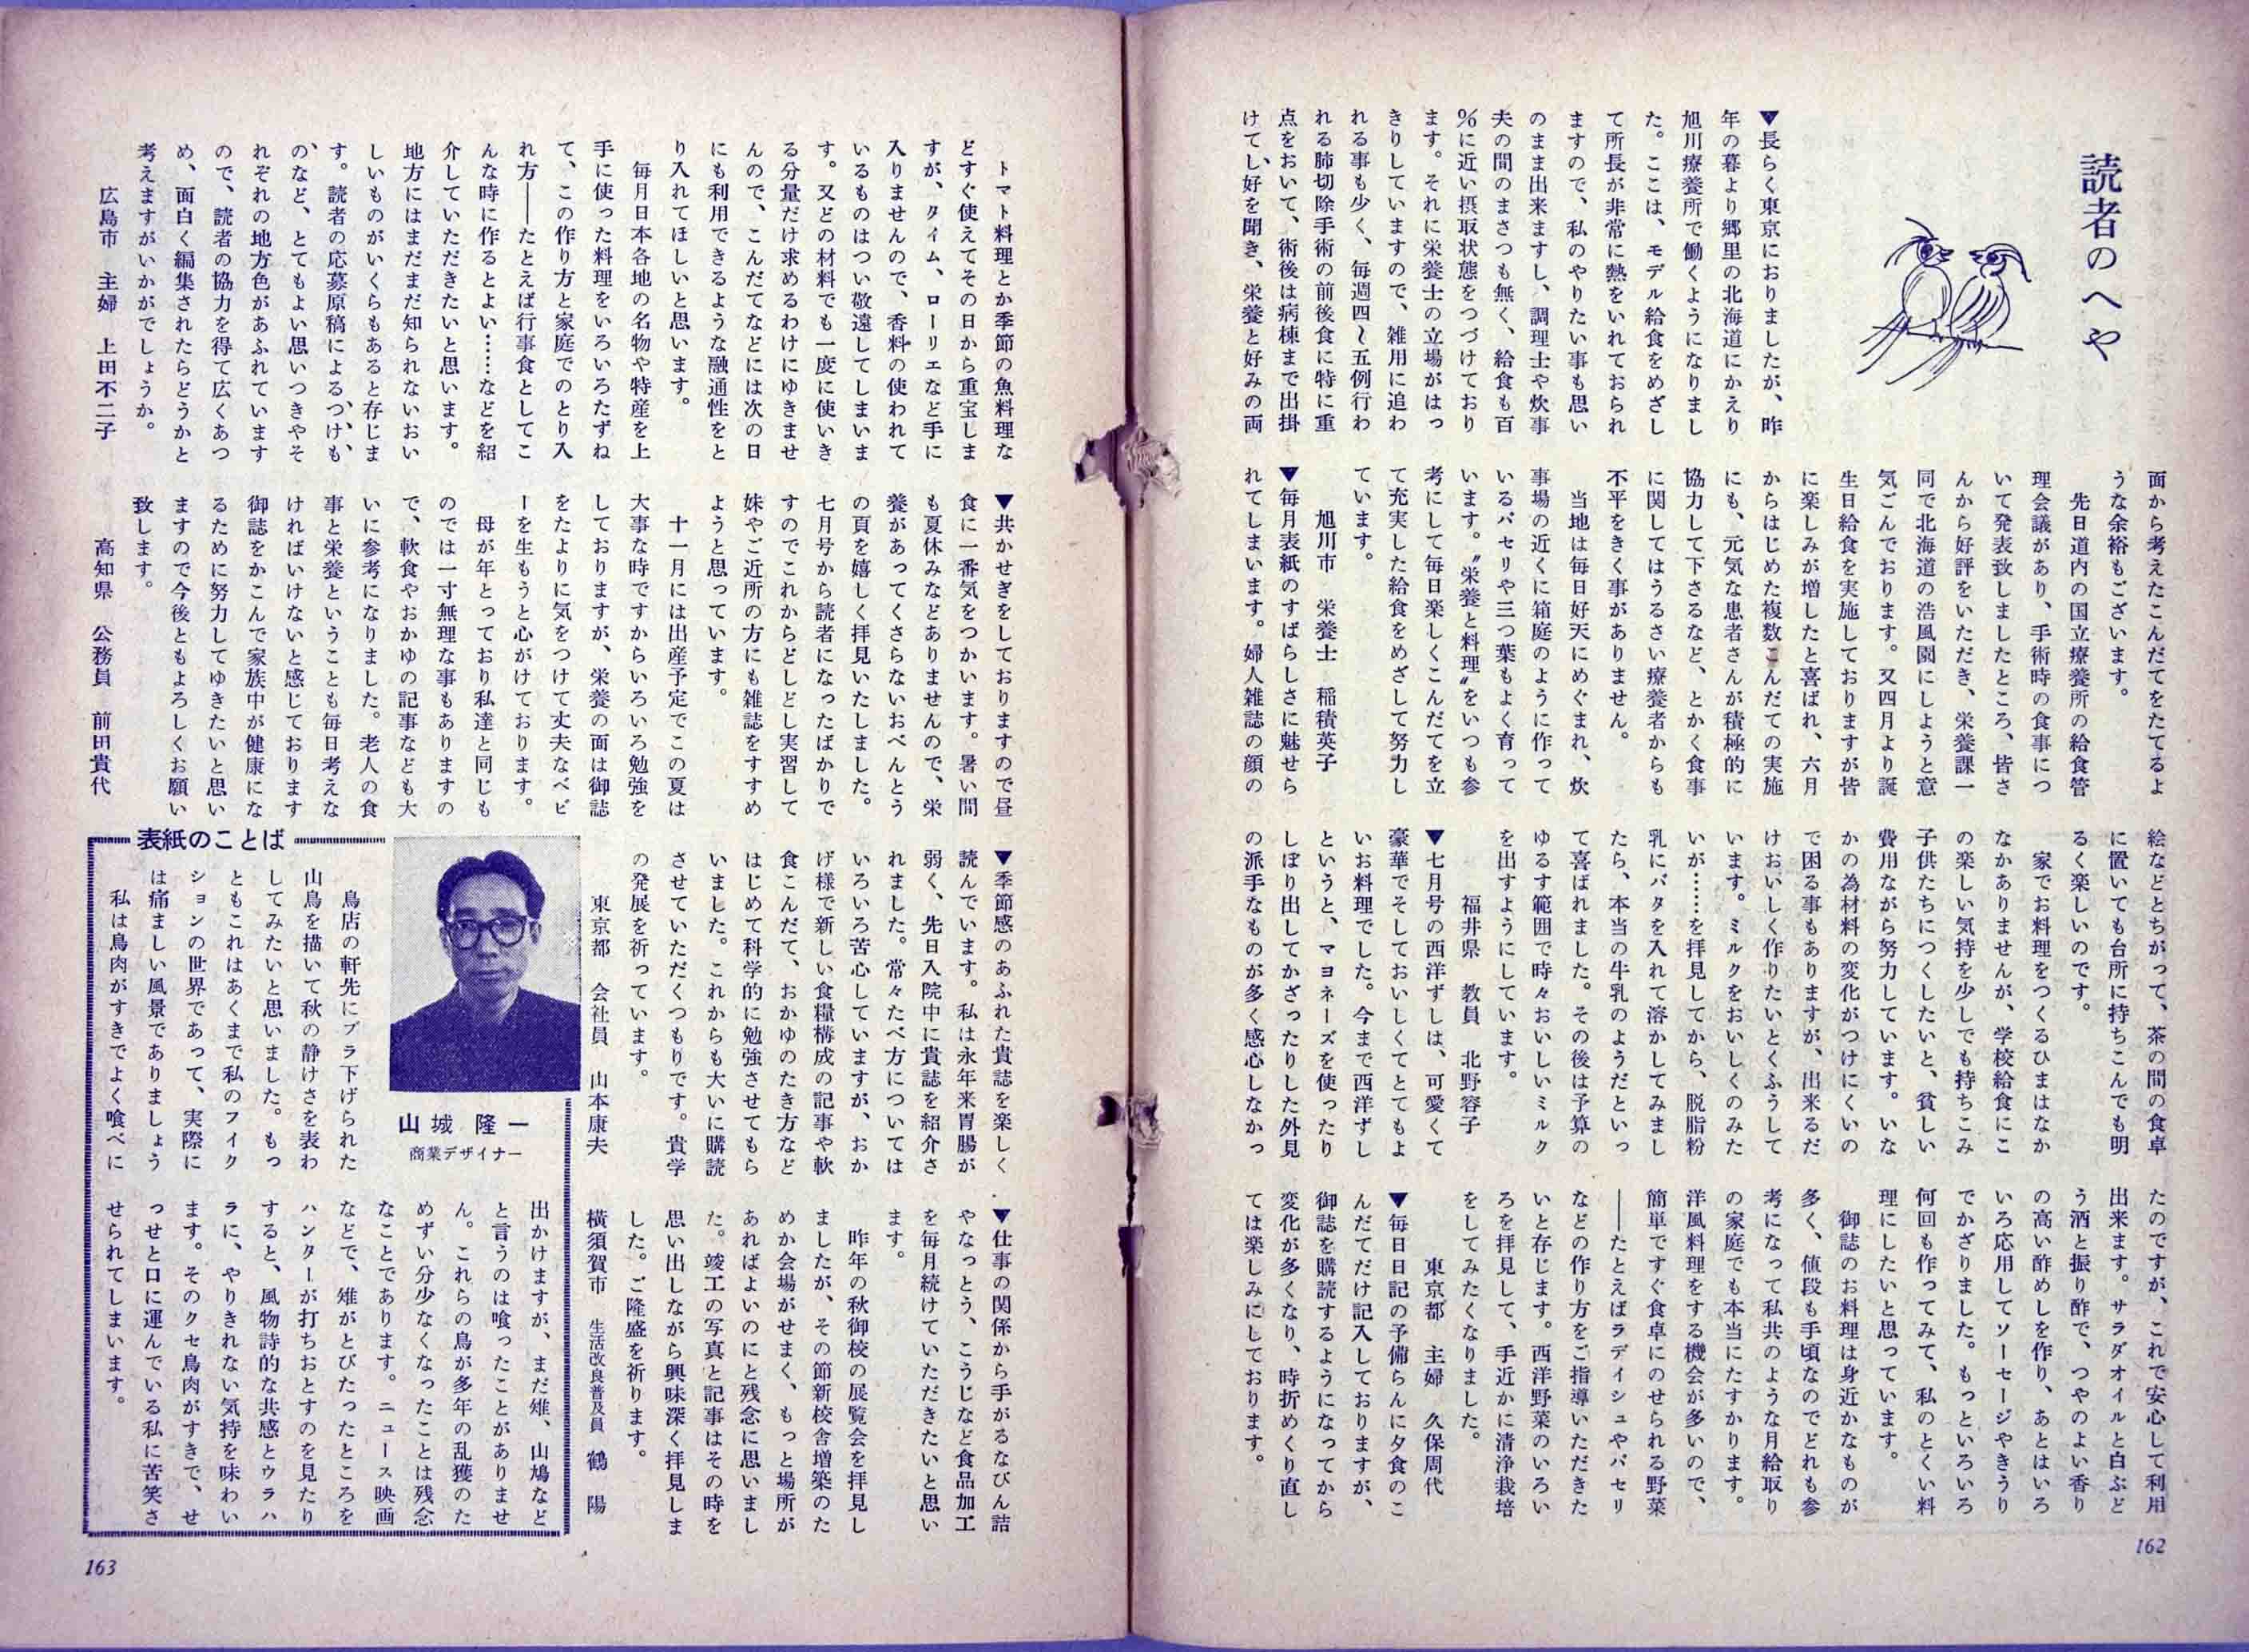 読者のへや
▼長らく東京におりましたが、昨
年の暮より郷里の北海道にかえり
旭川療養所で働くようになりまし
た。ここは、モデル給食をめざし
て所長が非常に熱をいれておられ
ますので、私のやりたい事も思い
のまま出来ますし、調理士や炊事
夫の間のまさつも無く、給食も百
％に近い摂取状態をつづけており
ます。それに栄養士の立場がはっ
きりしていますので、雑用に追わ
れる事も少く、毎週四〜五例行わ
れる肺切除手術の前後食に特に重
点をおいて、術後は病棟まで出掛
けてし好を聞き、栄養と好みの両
面から考えたこんだてをたてるよ
うな余裕もございます。
先日道内の国立療養所の給食管
理会議があり、手術時の食事につ
いて発表致しましたところ、皆さ
んから好評をいただき、栄養課一
同で北海道の浩風園にしようと意
気ごんでおります。又四月より誕
生日給食を実施しておりますが皆
に楽しみが増したと喜ばれ、六月
からはじめた複数こんだての実施
にも、元気な患者さんが積極的に
協力して下さるなど、とかく食事
に関してはうるさい療養者からも
不平をきく事がありません。
当地は毎日好天にめぐまれ、炊
事場の近くに箱庭のように作って
いるパセリや三つ葉もよく育って
います。〝栄養と料理〟をいつも参
考にして毎日楽しくこんだてを立
て充実した給食をめざして努力し
ています。
旭川市　栄養士　稲積英子
▼毎月表紙のすばらしさに魅せら
れてしまいます。婦人雑誌の顔の
絵などとちがって、茶の間の食卓
に置いても台所に持ちこんでも明
るく楽しいのです。
家でお料理をつくるひまはなか
なかありませんが、学校給食にこ
の楽しい気持を少しでも持ちこみ
子供たちにつくしたいと、貧しい
費用ながら努力しています。いな
かの為材料の変化がつけにくいの
で困る事もありますが、出来るだ
けおいしく作りたいとくふうして
います。ミルクをおいしくのみた
いが……を拝見してから、脱脂粉
乳にバタを入れて溶かしてみまし
たら、本当の牛乳のようだといっ
て喜ばれました。その後は予算の
ゆるす範囲で時々おいしいミルク
を出すようにしています。
福井県　教員　北野容子
▼七月号の西洋ずしは、可愛くて
豪華でそしておいしくてとてもよ
いお料理でした。今まで西洋ずし
というと、マヨネーズを使ったり
しぼり出してかざったりした外見
の派手なものが多く感心しなかっ
たのですが、これで安心して利用
出来ます。サラダオイルと白ぶど
う酒と振り酢で、つやのよい香り
の高い酢めしを作り、あとはいろ
いろ応用してソーセージやきうり
でかざりました。もっといろいろ
何回も作ってみて、私のとくい料
理にしたいと思っています。
御誌のお料理は身近かなものが
多く、値段も手頃なのでどれも参
考になって私共のような月給取り
の家庭でも本当にたすかります。
洋風料理をする機会が多いので、
簡単ですぐ食卓にのせられる野菜
――たとえばラディシュやパセリ
などの作り方をご指導いただきた
いと存じます。西洋野菜のいろい
ろを拝見して、手近かに清浄栽培
をしてみたくなりました。
東京都　主婦　久保周代
▼毎日日記の予備らんに夕食のこ
んだてだけ記入しておりますが、
御誌を購読するようになってから
変化が多くなり、時折めくり直し
ては楽しみにしております。
162
トマト料理とか季節の魚料理な
どすぐ使えてその日から重宝しま
すが、タイム、ローリエなど手に
入りませんので、香料の使われて
いるものはつい敬遠してしまいま
す。又どの材料でも一度に使いき
る分量だけ求めるわけにゆきませ
んので、こんだてなどには次の日
にも利用できるような融通性をと
り入れてほしいと思います。
毎月日本各地の名物や特産を上
手に使った料理をいろいろたずね
て、この作り方と家庭でのとり入
れ方――たとえば行事食としてこ
んな時に作るとよい……などを紹
介していただきたいと思います。
地方にはまだまだ知られないおい
しいものがいくらもあると存じま
す。読者の応募原稿によるつけも
のなど、とてもよい思いつきやそ
れぞれの地方色があふれています
ので、読者の協力を得て広くあつ
め、面白く編集されたらどうかと
考えますがいかがでしょうか。
広島市　主婦　上田不二子
▼共かせぎをしておりますので昼
食に一番気をつかいます。暑い間
も夏休みなどありませんので、栄
養があってくさらないおべんとう
の頁を嬉しく拝見いたしました。
七月号から読者になったばかりで
すのでこれからどしどし実習して
妹やご近所の方にも雑誌をすすめ
ようと思っています。
十一月には出産予定でこの夏は
大事な時ですからいろいろ勉強を
しておりますが、栄養の面は御誌
をたよりに気をつけて丈夫なベビ
ーを生もうと心がけております。
母が年とっており私達と同じも
のでは一寸無理な事もありますの
で、軟食やおかゆの記事なども大
いに参考になりました。老人の食
事と栄養ということも毎日考えな
ければいけないと感じております
御誌をかこんで家族中が健康にな
るために努力してゆきたいと思い
ますので今後ともよろしくお願い
致します。
高知県　公務員　前田貴代
▼季節感のあふれた貴誌を楽しく
読んでいます。私は永年来胃腸が
弱く、先日入院中に貴誌を紹介さ
れました。常々たべ方については
いろいろ苦心していますが、おか
げ様で新しい食糧構成の記事や軟
食こんだて、おかゆのたき方など
はじめて科学的に勉強させてもら
いました。これからも大いに購読
させていただくつもりです。貴学
の発展を祈っています。
東京都　会社員　山本康夫
▼仕事の関係から手がるなびん詰
やなっとう、こうじなど食品加工
を毎月続けていただきたいと思い
ます。
昨年の秋御校の展覧会を拝見し
ましたが、その節新校舎増築のた
めか会場がせまく、もっと場所が
あればよいのにと残念に思いまし
た。竣工の写真と記事はその時を
思い出しながら興味深く拝見しま
した。ご隆盛を祈ります。
横須賀市　生活改良普及員　鶴　陽
表紙のことば
山城隆一
商業デザイナー
鳥店の軒先にブラ下げられた
山鳥を描いて秋の静けさを表わ
してみたいと思いました。もっ
ともこれはあくまで私のフイク
ションの世界であって、実際に
は痛ましい風景でありましょう
私は鳥肉がすきでよく喰べに
出かけますが、まだ雉、山鳩など
と言うのは喰ったことがありませ
ん。これらの鳥が多年の乱獲のた
めずい分少なくなったことは残念
なことであります。ニュース映画
などで、雉がとびたったところを
ハンターが打ちおとすのを見たり
すると、風物詩的な共感とウラハ
ラに、やりきれない気持を味わい
ます。そのクセ鳥肉がすきで、せ
っせと口に運んでいる私に苦笑さ
せられてしまいます。
163